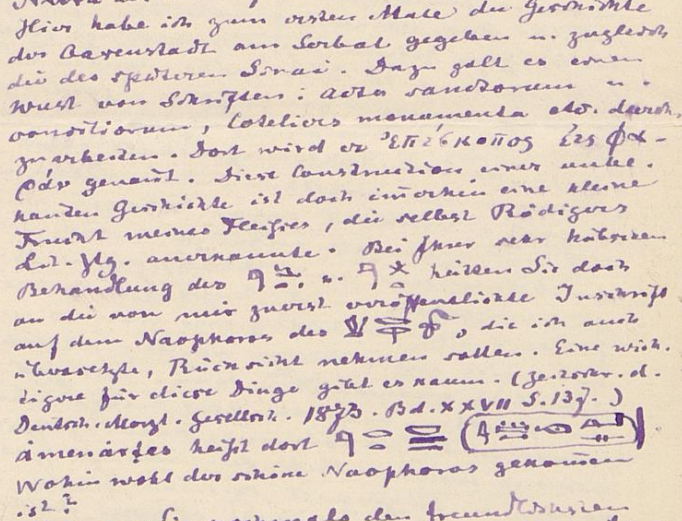 Hier habe ich zum ersten Male die Geschichte
der Oasenstadt am Serbal gegeben u. zugleich
die des späteren Sinai. Dazu galt es einen
Wust von Schriften: Acta sanctorum u.
consiliorum, Coteliers monumenta etc. durch-
zuarbeiten. Dort wird er Ἐπίσκοπος
genannt. Diese Construction einer unbe-
kannten Geschichte ist doch im̄erhin eine kleine
Frucht meines Fleißes, die selbst Rödigers
Lit. Ztg. anerkannte. Bei Ihrer sehr hübschen
Behandlung des u. hätten Sie doch
an die von mir zuerst veröffentlichte Inschrift
auf dem Naophoros des , die ich auch
übersetzte, Rücksicht nehmen sollen. Eine wich-
tigere für diese Dinge gibt es kaum. (Zeitschr. d.
Deutsch. Morgl. Gesellsch. 1873. Bd. XXVII S. 137.)
heißt dort
Wohin wohl der schöne Naophoros gekom̄en
ist?
den freundlichsten